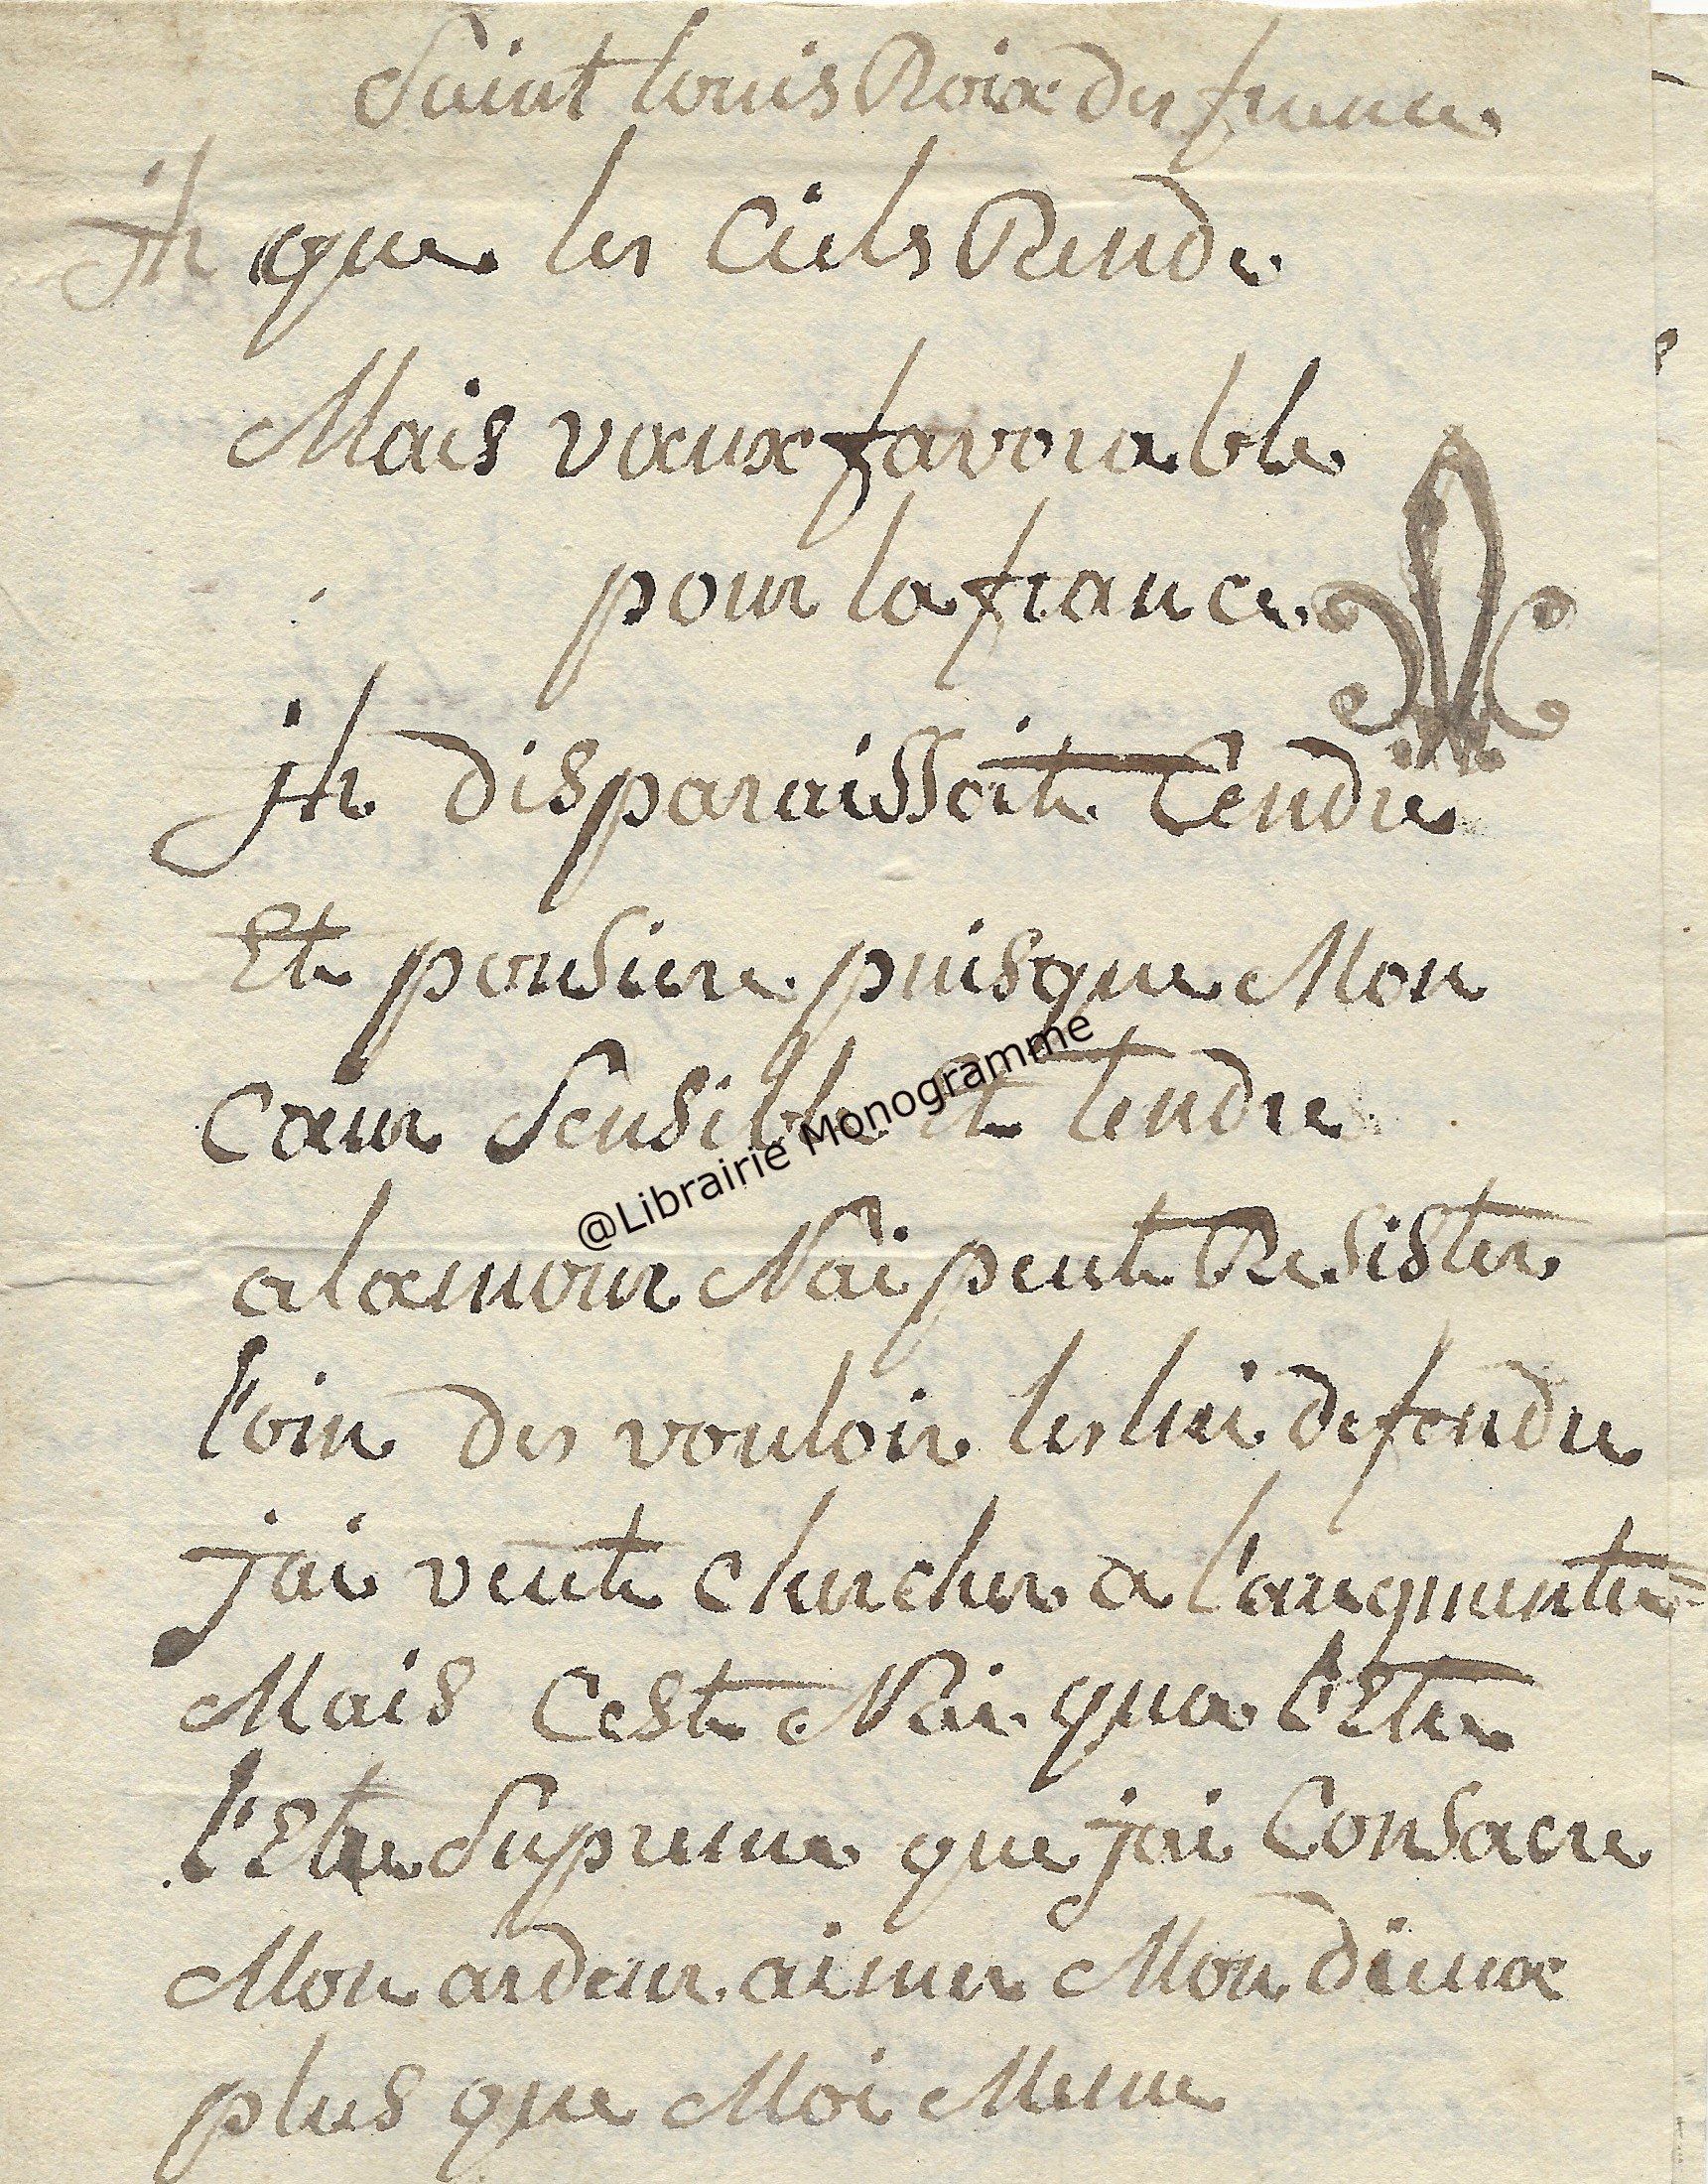 Saint louis Roix des france
jh que les Ciels Rende
Mais vœux favorable
pour la france
jh disparaissoit Cendre
Et pousiere puisque Mon
Cœur Sensible Et tendre
a lamour Nai peut Resister
l'oin des vouloir les lui defendre
jai veut chercher a l'augmenter
Mais Cest Nai qua l'Etre
l'Etre Supreme que jai Consacre
Mon ardeur aimer Mon dieux
plus que Moi Meme
@Librairie Monogramme